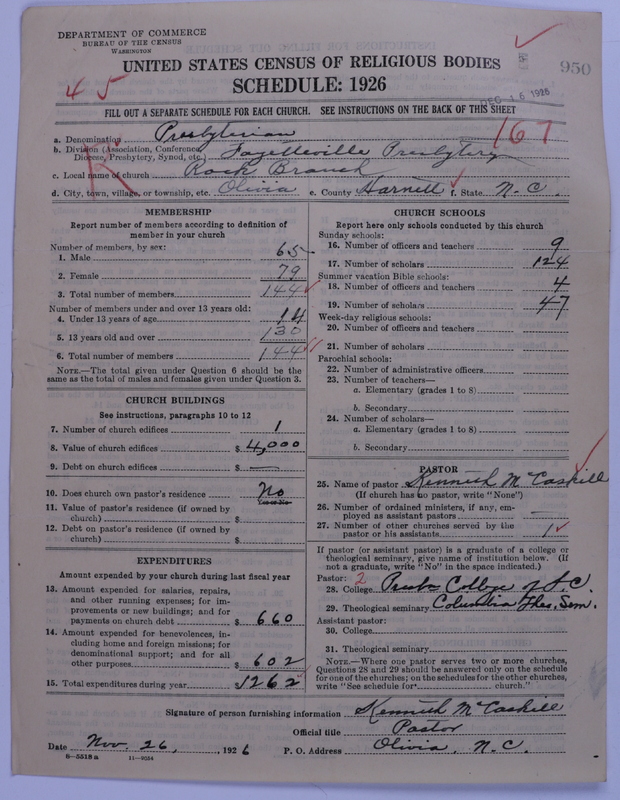 DEPARTMENT OF COMMERCE
BUREAU OF THE CENSUS
WASHINGTON
UNITED STATES CENSUS OF RELIGIOUS BODIES
950
SCHEDULE: 1926
45
DEC 16 1926
FILL OUT A SEPARATE SCHEDULE FOR EACH CHURCH. SEE INSTRUCTIONS ON THE BACK OF THIS SHEET
167
a. Denomination Presbyterian
b. Division (Association, Conference, Diocese, Presbytery, Synod, etc.) Fayetteville Presbytery
c. Local name of church Rock Branch
d. City, town, village, or township, etc. Olivia e. County Harnett f. State N.C.
MEMBERSHIP
Report number of members according to definition of
member in your church
Number of members, by sex:
1. Male 65
2. Female 79
3. Total number of members 144
Number of members under and over 13 years old:
4. Under 13 years of age 14
5. 13 years old and over 130
6. Total number of members 144
NOTE.—The total given under Question 6 should be
same as the total of males and females given under Question 3.
CHURCH BUILDINGS
See instructions, paragraphs 10 to 12
7. Number of church edifices 1
8. Value of church edifices $ 4,000
9. Debt on church edifices $ —
10. Does church own pastor's residence No
(Yes or No)
11. Value of pastor's residence (if owned by
church) $
12. Debt on pastor's residence (if owned by
church) $
EXPENDITURES
Amount expended by your church during last fiscal year
13. Amount expended for salaries, repairs,
and other running expenses; for im-
provements or new buildings; and for
payments on church debt $ 660
14. Amount expended for benevolences, in-
cluding home and foreign missions; for
denominational support; and for all
other purposes $ 602
15. Total expenditures during year $ 1262
CHURCH SCHOOLS
Report here only schools conducted by this church
Sunday schools:
16. Number of officers and teachers 9
17. Number of scholars 124
Summer vacation Bible schools:
18. Number of officers and teachers 4
19. Number of scholars 47
Week-day religious schools:
20. Number of officers and teachers
21. Number of scholars
Parochial schools:
22. Number of administrative officers
23. Number of teachers—
a. Elementary (grades 1 to 8)
b. Secondary
24. Number of scholars—
a. Elementary (grades 1 to 8)
b. Secondary
PASTOR
25. Name of pastor Kenneth McCaskill
(If church has no pastor, write "None")
26. Number of ordained ministers, if any, em-
ployed as assistant pastors —
27. Number of other churches served by the
pastor or his assistants 1
If pastor (or assistant pastor) is a graduate of a college or
theological seminary, give name of institution below. (If
not a graduate, write "No" in the space indicated.)
Pastor: 2
28. College Presb. College of S.C.
29. Theological seminary Columbia Theo. Sem.
Assistant pastor:
30. College
31. Theological seminary
NOTE.—Where one pastor serves two or more churches,
Questions 28 and 29 should be answered only on the schedule
for one of the churches; on the schedules for the other churches,
write "See schedule for church."
Signature of person furnishing information Kenneth McCaskill
Official title Pastor
Date Nov. 26, , 1926 P. O. Address Olivia, N.C.
8—5518a 11—9554